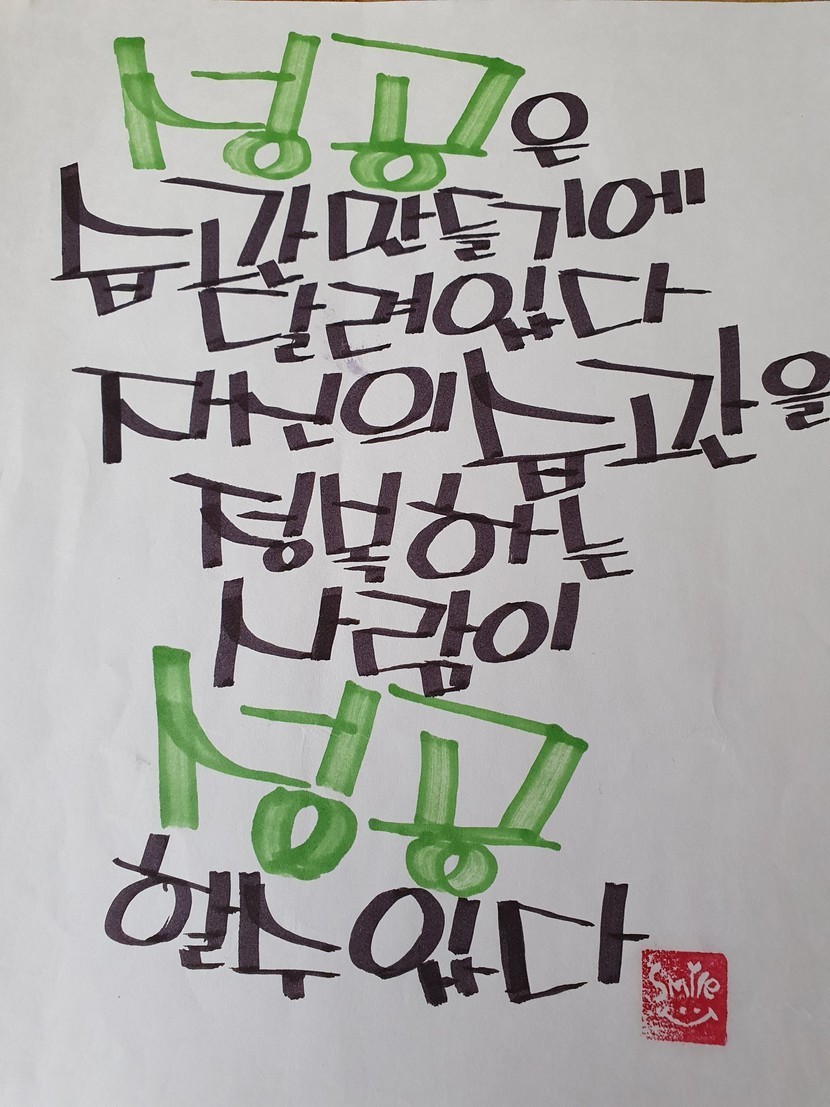 성공은
습관만들기에
달려있다
자신의 습관을
정복하는
사람이
성공
할수있다
Smile